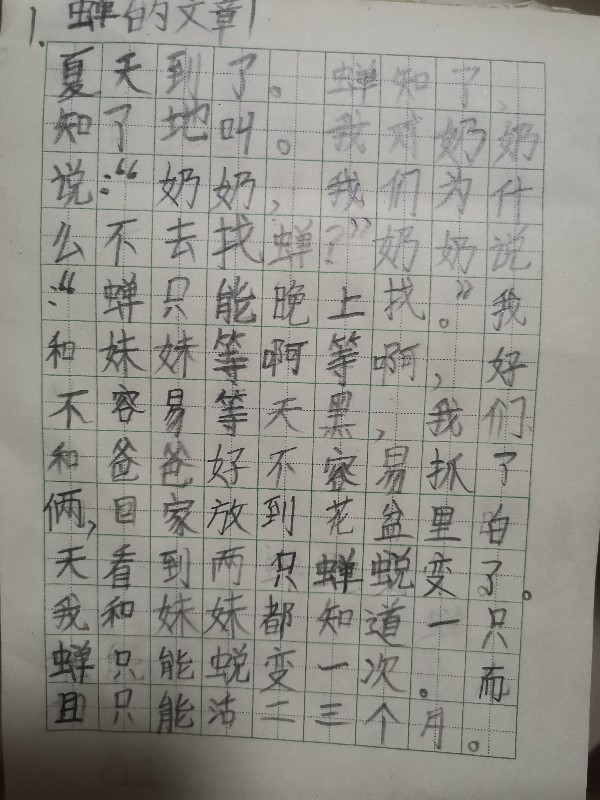 1. 蝉的文章
夏天到了。蝉知了,
知了地叫。我对奶奶
说:“奶奶,我们为什
么不去找蝉?”奶奶说
:“蝉只能晚上找。”我
和妹妹等啊等啊,好
不容易等天黑,我们
和爸爸好不容易抓了
俩,回家放到花盆里白
天看到两只蝉蜕变了。
我和妹妹都知道一只
蝉只能蜕变一次。而
且只能活二三个月。